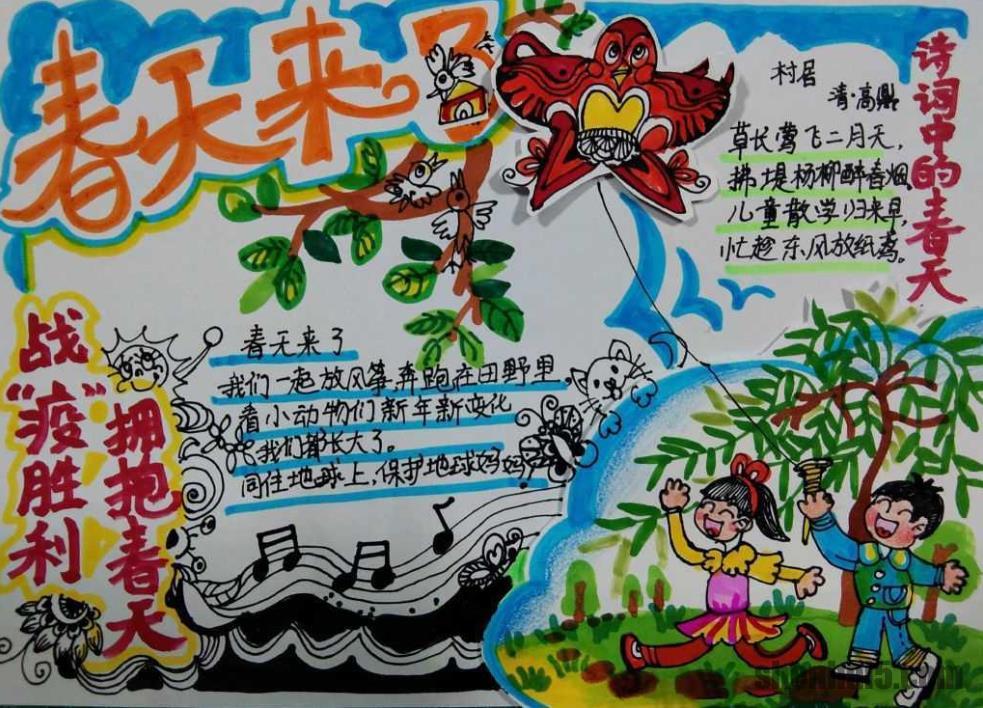 春天来了
村居
清·高鼎
草长莺飞二月天，
拂堤杨柳醉春烟，
儿童散学归来早，
忙趁东风放纸鸢。
诗词中的春天
战“疫”胜利
拥抱春天
春天来了
我们一起放风筝，奔跑在田野里，
看小动物们新年新变化
我们都长大了。
同住地球上，保护地球妈妈